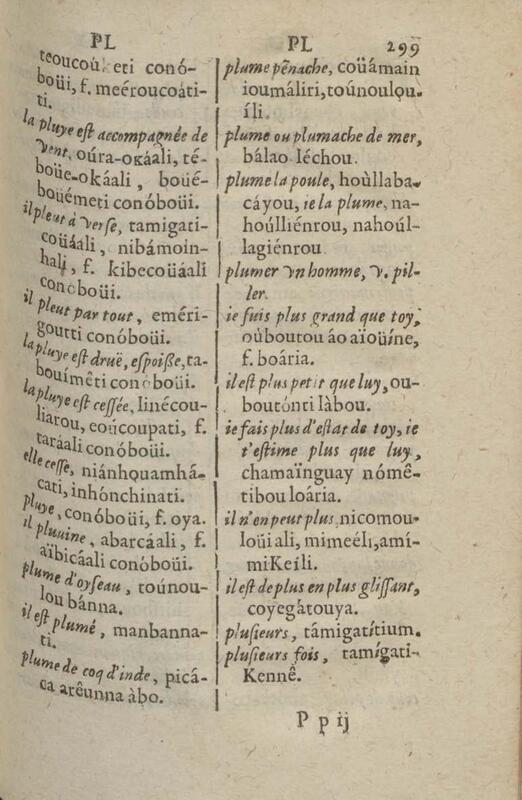 PL
teoucoú keti conó-
boüi, f. meéroucoáti-
ti.
la pluye est accompagnée de
vent, oúra-okáali, té-
boüe-okáali, boüé-
boüémeti conóboüi.
il pleut à verse, tamigati-
coüáali, nibámoin-
hali, f. kibecoüáali
conoboüi.
il pleut par tout, eméri-
goutti conóboüi.
la pluye est druë, espoisse, ta-
bouímêti conoboüi.
la pluye est cessée, linécou-
liarou, eoúcoupati, f.
taráali conóboüi.
elle cesse, niánhouamhá-
cati, inhónchinati.
pluye, conóboüi, f. oya.
il pluuine, abarcáali, f.
aïbicáali conóboüi.
plume d'oyseau, toúnou-
lou bánna.
il est plumé, manbanna-
ti.
plume de coq d'inde, picá-
ca arêunna àbo.
PL 299
plume pẽnache, coüámain
ioumáliri, toúnoulou-
íli.
plume ou plumache de mer,
bálao léchou.
plume la poule, hoùllaba-
cáyou, ie la plume, na-
hoúlliénrou, nahoúl-
lagiénrou.
plumer vn homme, v. pil-
ler.
ie suis plus grand que toy,
oùboutou áo aïoüíne,
f. boária.
il est plus petit que luy, ou-
boutónti làbou.
ie fais plus d'estat de toy, ie
t'estime plus que luy,
chamaïnguay nómê-
tibou loária.
il n'en peut plus, nicomou-
loüi ali, mimeéli, amí-
miKeíli.
il est de plus en plus glissant,
coyegátouya.
plusieurs, támigatítium.
plusieurs fois, tamígati-
Kennê.
P p ij